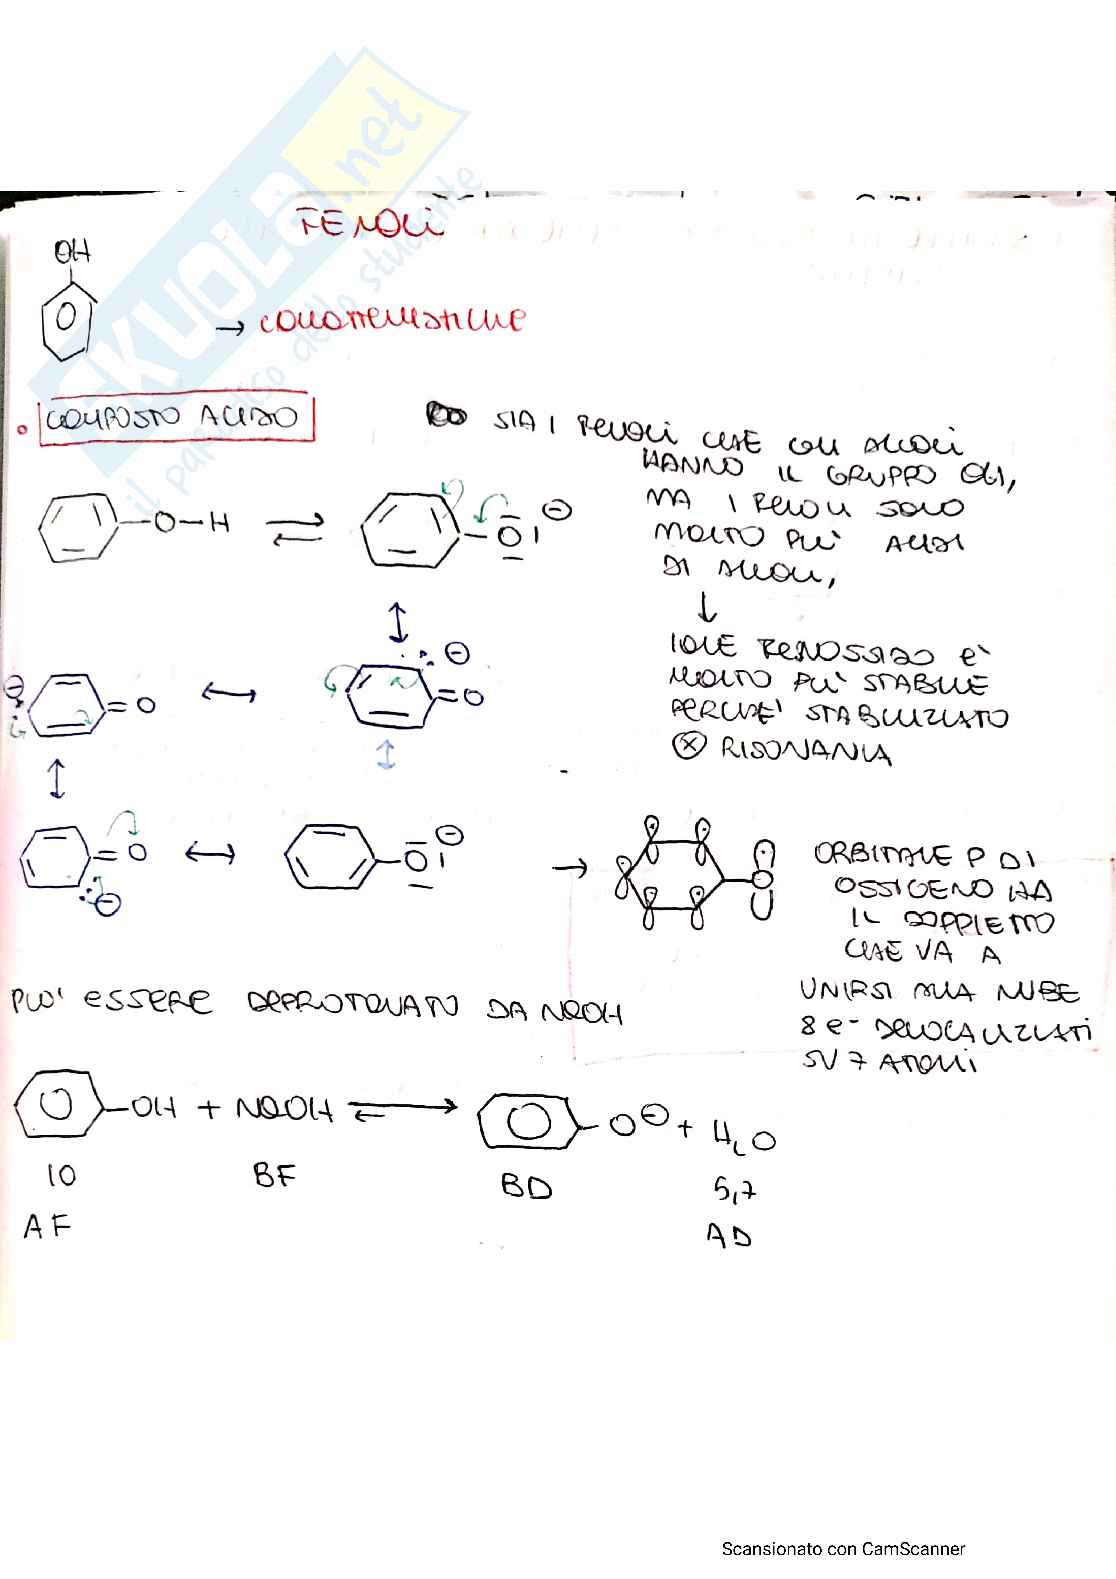 FENOLI
OH
→ CARATTERISTICHE
COMPOSTO ACIDO
SIA I FENOLI CHE GLI ALCOLI
HANNO IL GRUPPO OH,
MA I FENOLI SONO
MOLTO PIÙ ACIDI
DI ALCOLI,
O-H
O
⊖
IONE FENOSSIDO È
MOLTO PIÙ STABILE
PERCHÈ STABILIZZATO
⊗ RISONANZA
⊖
=O
⊖
=O
=O
⊖
O
⊖
ORBITALE P DI
OSSIGENO HA
IL DOPPIETTO
CHE VA A
UNIRSI ALLA NUBE
8 e- DELOCALIZZATI
SU 7 ATOMI
PUO' ESSERE DEPROTONATO DA NaOH
OH + NaOH
O⊖ + H2O
10 BF BD 5,7
AF AD
SKUOLA.net
il paradiso dello studente
Scansionato con CamScanner